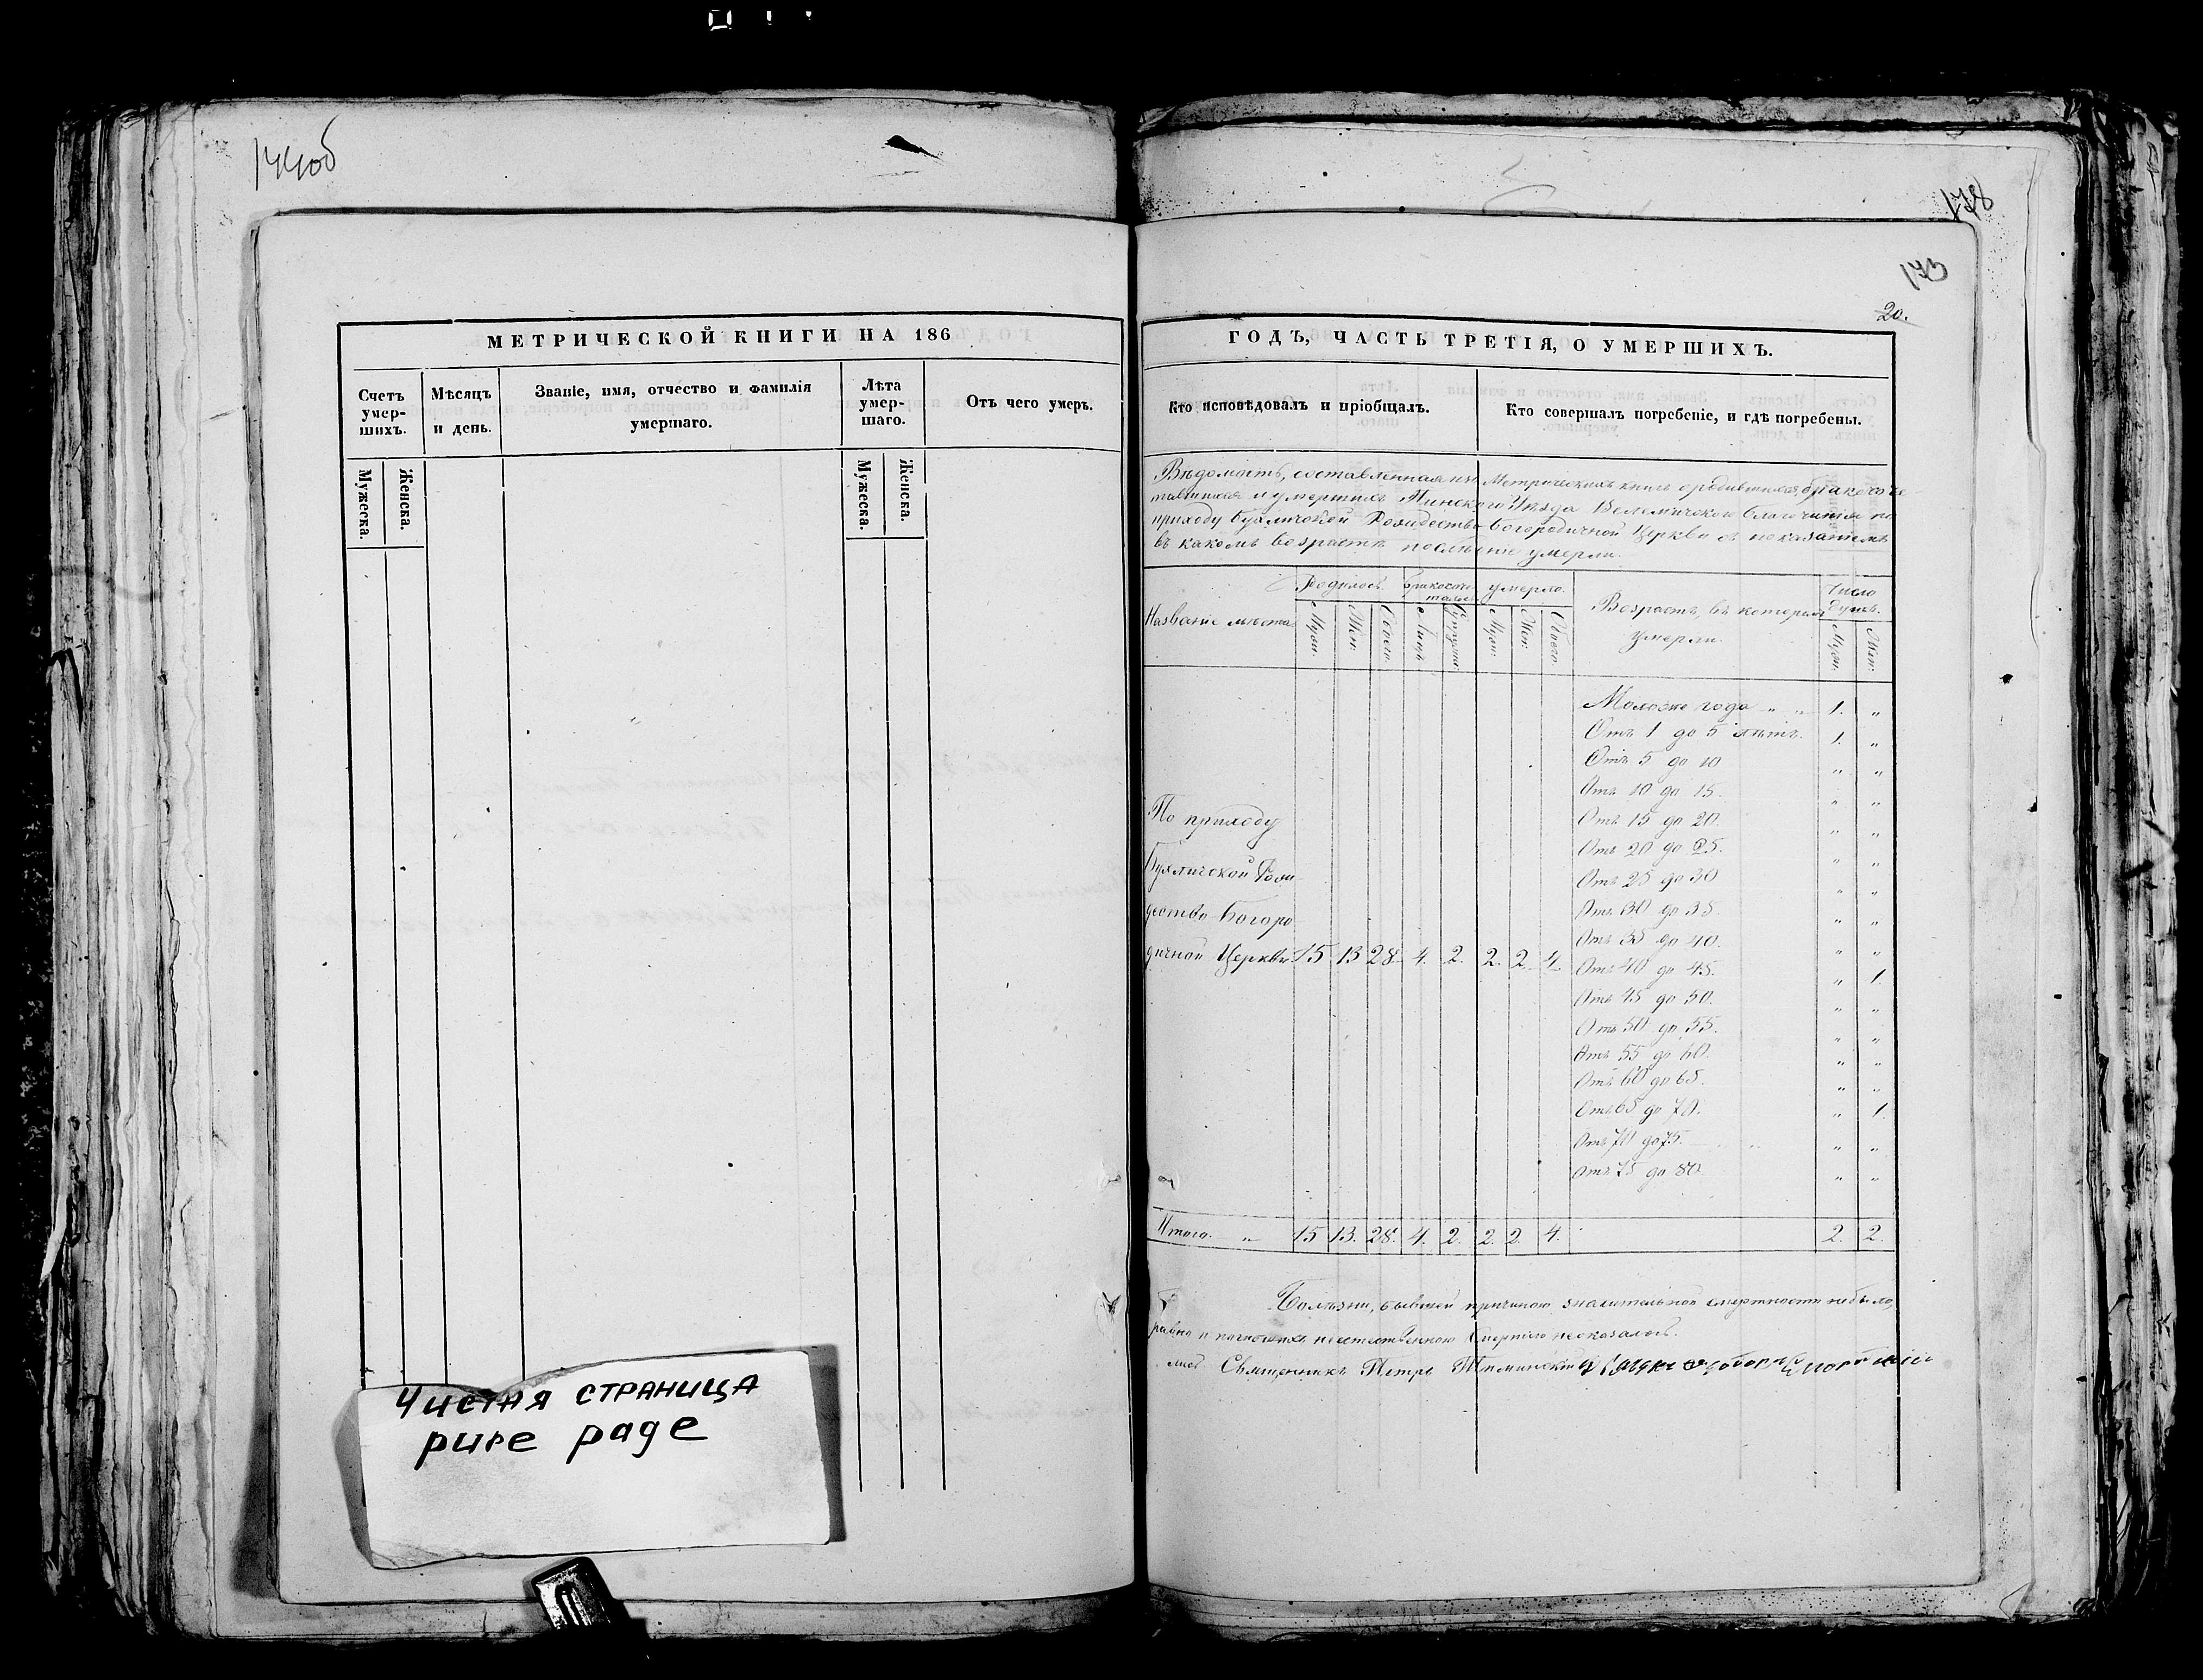 144об
178
173
20.
МЕТРИЧЕСКОЙ КНИГИ НА 186
Счетъ умер-шихъ.
Мѣсяцъ и день.
Званіе, имя, отчество и фамилія умершаго.
Лѣта умер-шаго.
Отъ чего умеръ.
Мужеска.
Женска.
Мужеска.
Женска.
Чистая страница
pure page
ГОДЪ, ЧАСТЬ ТРЕТІЯ, О УМЕРШИХЪ.
Кто исповѣдовалъ и пріобщалъ.
Кто совершалъ погребеніе, и гдѣ погребены.
Вѣдомость, составленная изъ Метрическихъ книгъ о родившихся, бракосоче
тавшихся и умершихъ Пинскаго Уѣзда Велемичскаго благочинія по
приходу Бухличской Рождество-Богородичной Церкви съ показаніемъ
въ какомъ возрастѣ послѣдніе умерли.
Названіе мѣста
Родилось
умерло.
Возрастъ, въ которомъ умерли.
Число душъ.
Муж. Жен. Обоего Муж. Жен. Обоего Муж. Жен.
Моложе года " " 1. "
Отъ 1 до 5 лѣтъ. 1. "
Отъ 5 до 10 " "
Отъ 10 до 15. " "
Отъ 15 до 20. " "
Отъ 20 до 25. " "
Отъ 25 до 30 " "
Отъ 30 до 35. " "
Отъ 35 до 40. " "
Отъ 40 до 45. " 1.
Отъ 45 до 50. " "
Отъ 50 до 55. " "
Отъ 55 до 60. " "
Отъ 60 до 65. " "
Отъ 65 до 70. " 1.
Отъ 70 до 75. " "
Отъ 75 до 80. " "
По приходу
Бухличской Рож
дество-Богоро
дичной Церкви 15 13 28. 4. 2. 2. 2. 4.
Итого. " 15 13. 28. 4. 2. 2. 2. 4. 2. 2.
Болѣзни, бывшей причиною значительной смертности небыло,
равно и погибшихъ неестественною смертію неоказалось.
Священникъ Петръ